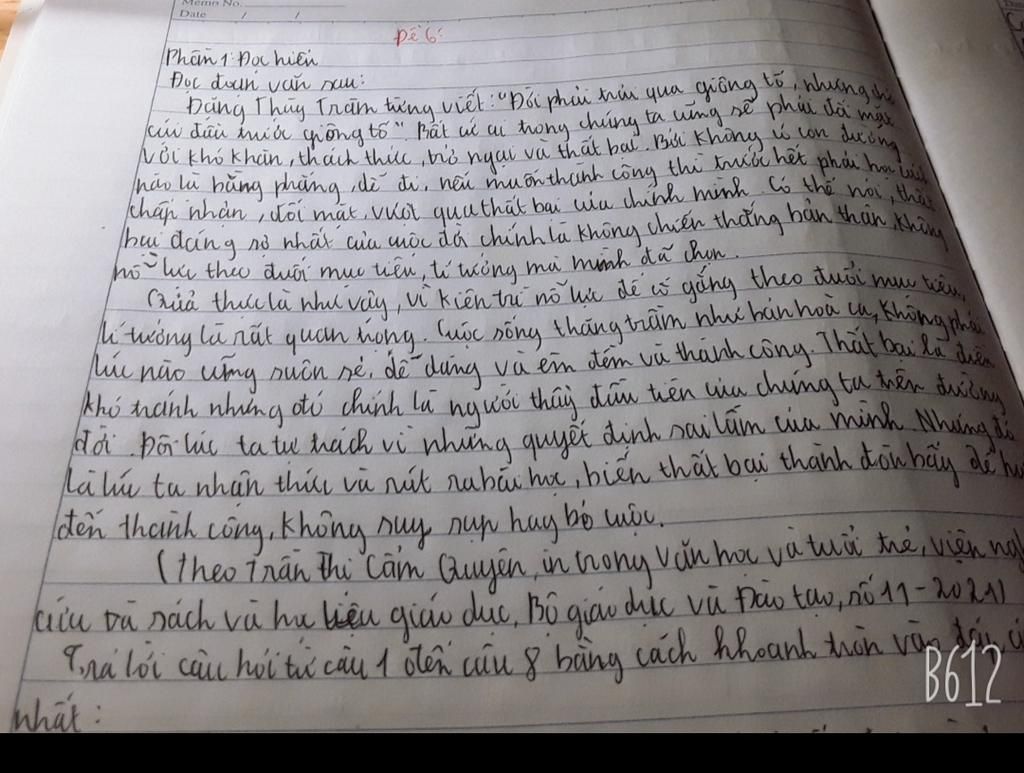 Memo No.
Date / /
Đề 6:
Phần 1: Đọc hiểu
Đọc đoạn văn sau:
Đặng Thùy Trâm từng viết: "Đời phải trải qua giông tố, nhưng chớ
cúi đầu trước giông tố" Bất cứ ai trong chúng ta cũng sẽ phải đối mặt
với khó khăn, thách thức, trở ngại và thất bại. Bởi không có con đường
nào là bằng phẳng, dễ đi, nếu muốn thành công thì trước hết phải học cách
chấp nhận, đối mặt, vượt qua thất bại của chính mình. Có thể nói, thất
bại đáng sợ nhất của cuộc đời chính là không chiến thắng bản thân, không
nỗ lực theo đuổi mục tiêu, lí tưởng mà mình đã chọn.
Quả thực là như vậy, vì kiên trì nỗ lực để cố gắng theo đuổi mục tiêu,
lí tưởng là rất quan trọng. Cuộc sống thăng trầm như bản hoà ca, không phải
lúc nào cũng suôn sẻ, dễ dàng và êm đềm và thành công. Thất bại là điều
khó tránh nhưng đó chính là người thầy đầu tiên của chúng ta trên đường
đời. Đôi lúc ta tự trách vì những quyết định sai lầm của mình. Nhưng đó
là lúc ta nhận thức và rút ra bài học, biến thất bại thành đòn bẩy để
đến thành công, không suy sụp hay bỏ cuộc.
(Theo Trần Thị Cẩm Quyên, in trong Văn học và tuổi trẻ, viện
cứu và sách và học liệu giáo dục, Bộ giáo dục và Đào tạo, số 11-2021)
Trả lời câu hỏi từ câu 1 đến câu 8 bằng cách khoanh tròn vào
nhất:
B612